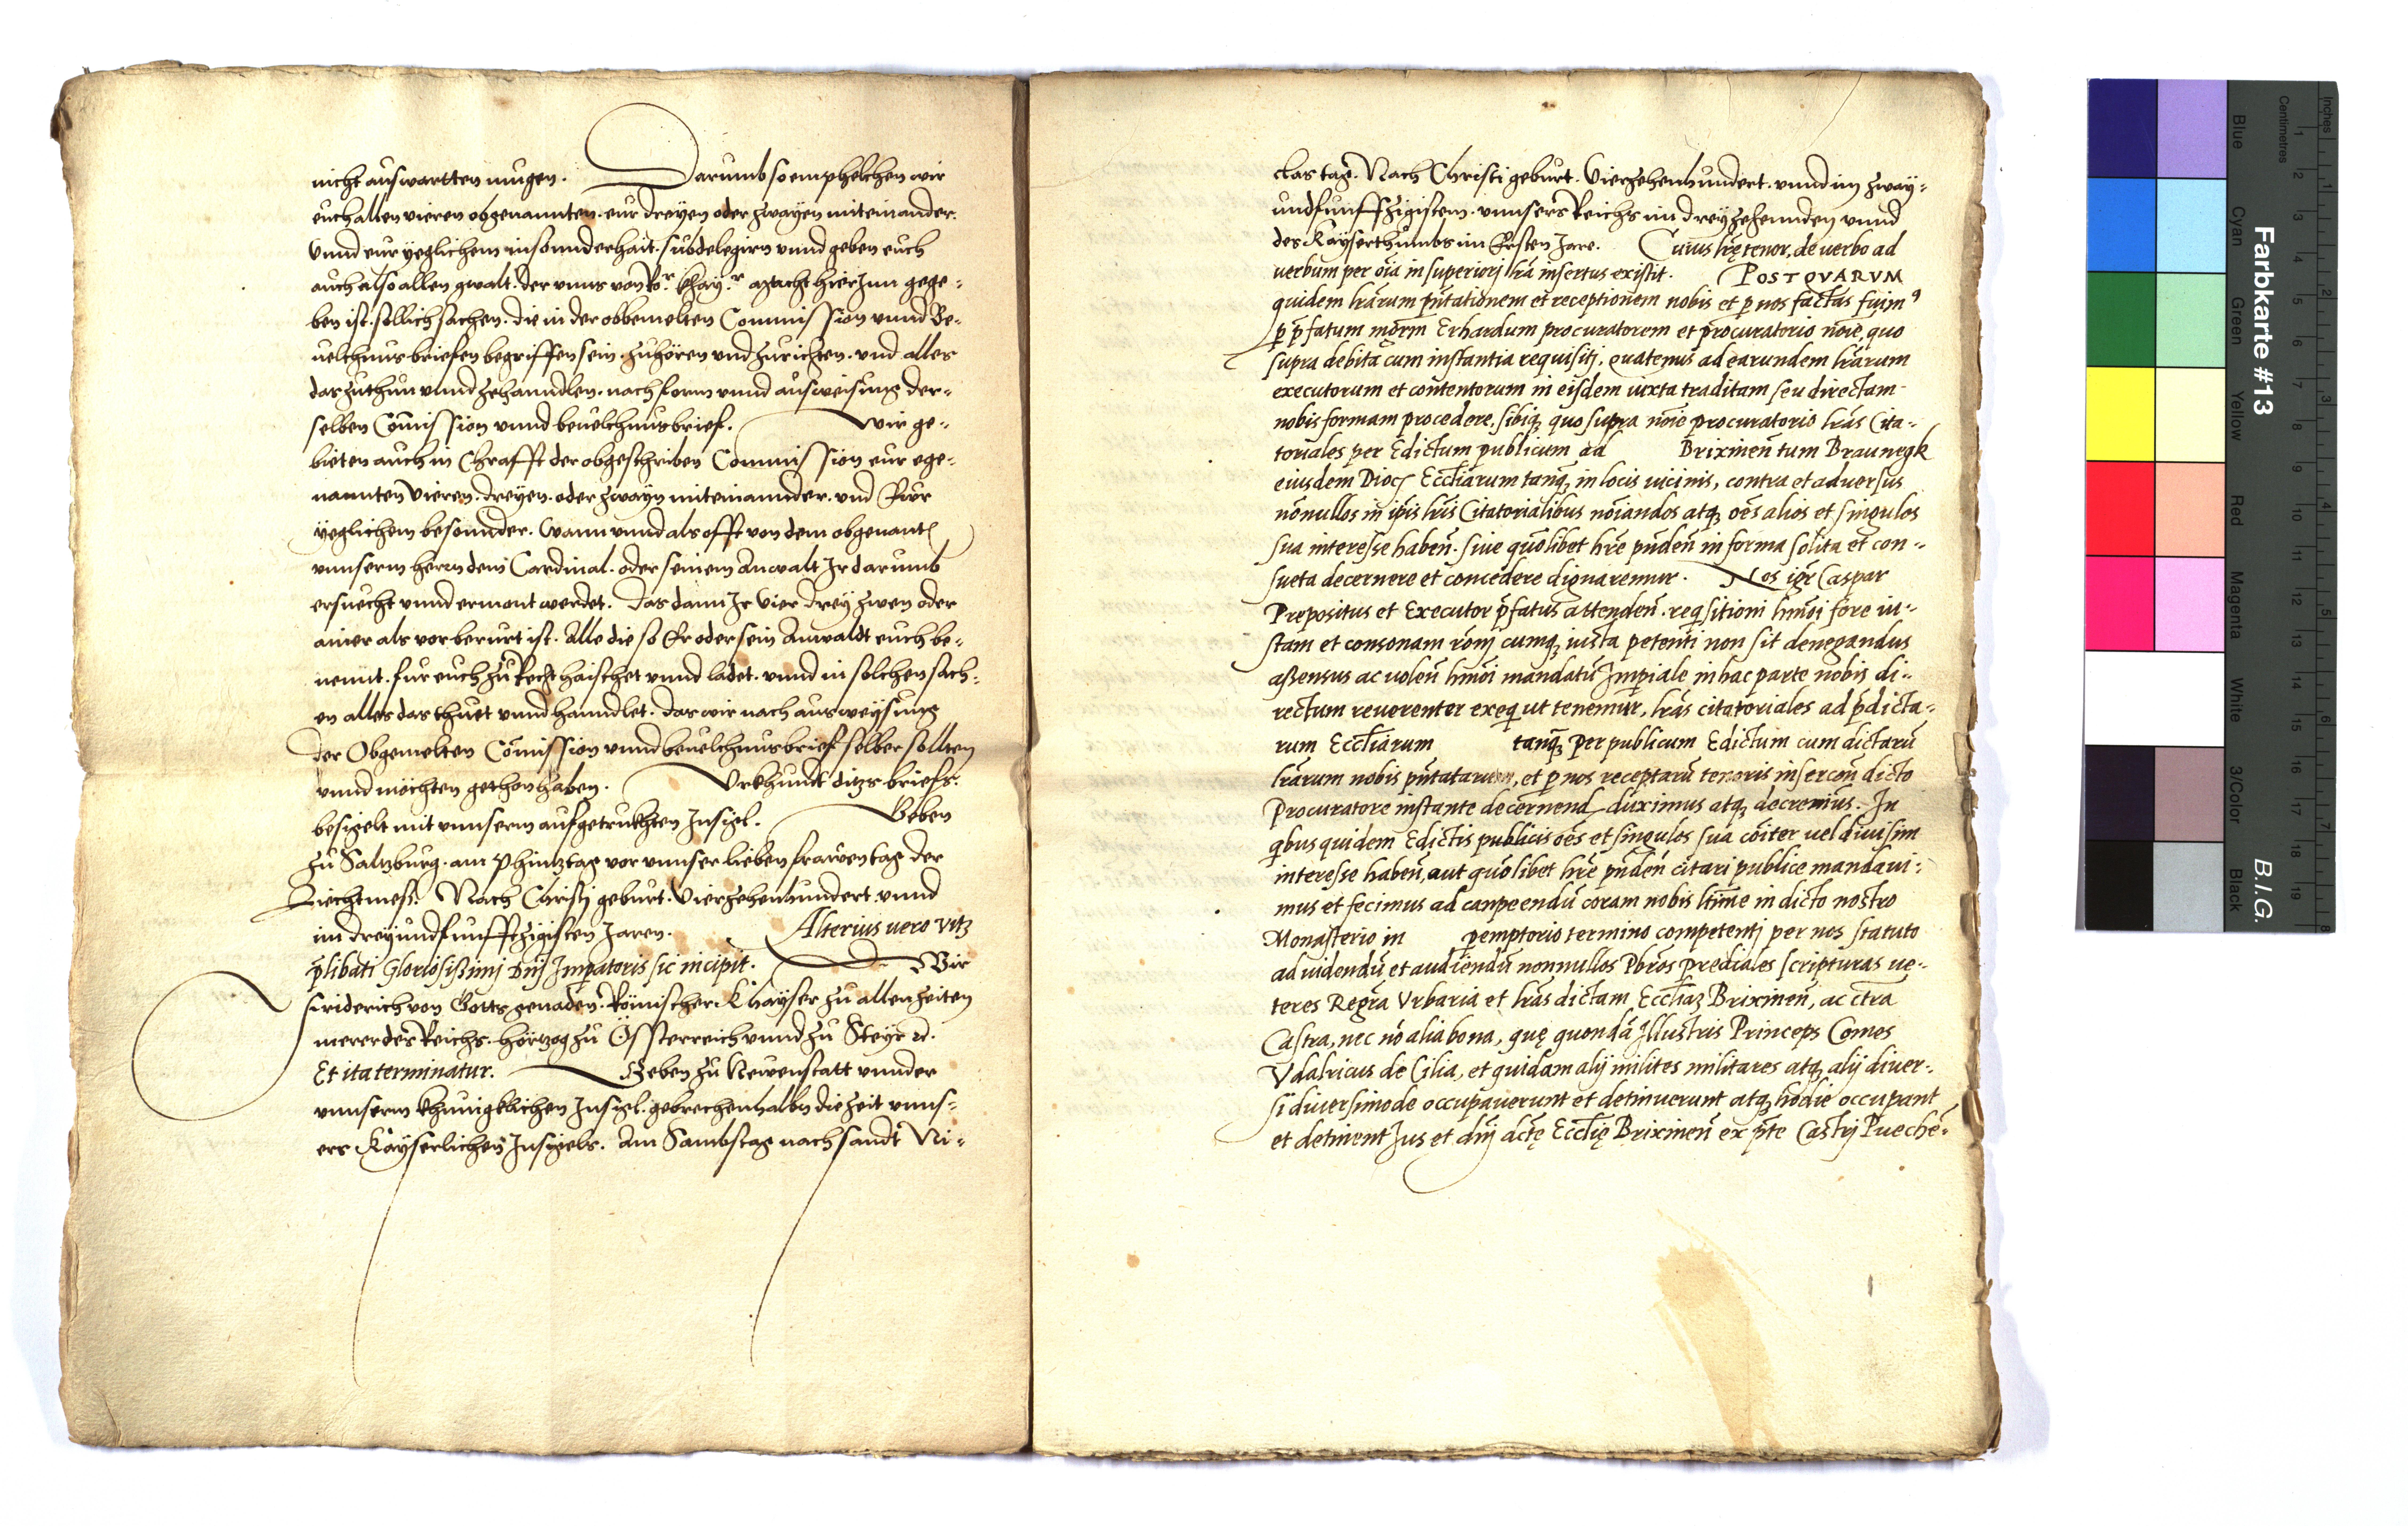 nicht auswartten mugen. Darumb so emphelchen wir
euch allen vieren obgenannten. eur dreyen oder zwayen miteinander.
Vnnd eur yeglichem in sonnderhait. subdelegirn vnnd geben euch
auch also allen gwalt. der vnns von Ro.r Khay.r macht hierinn gege-
ben ist. sollich sachen. die in der obbemelten Commission vnnd Be-
uelchnusbriefen begriffen sein. zuhören vnd zurichten. vnd alles
das zuthun vnnd zehanndlen. nach form vnnd ausweisung der-
selben Comission vnnd beuelchnusbrief. Wir ge-
bieten auch in Chrafft der obgeschriben Commission eur ege-
nannten Vieren. dreyen. oder zwayn miteinannder. vnd Eur
yeglichem besonnder. Wann vnnd als offt von dem obgenantn
vnnserm herrn dem Cardinal. oder seinem Anwalt Ir darumb
ersuecht vnnd ermont werdet. Das dann Ir Vier drey zwen oder
ainer als vorberurt ist. Alle die so Er oder sein Anwaldt euch be-
nennt. fur euch zu Recht haischet vnnd ladet. vnnd in solchen sach-
en alles das thuet vnnd hanndlet. das wir nach ausweysung
der Obgemelten Comission vnnd beuelchnusbrief selber sollten
vnnd möchten gethon haben. Vrkhundt ditzs briefs.
besigelt mit vnnserm aufgetrukhten Insigl. Geben
zu Saltzburg. am Phintztag vor vnnser lieben frawen tag der
Liechtmess. Nach Christj geburt. Vierzehenhundert. vnnd
im dreyundfunfftzigisten Jaren. Alterius uero vitz
p̄libati Gloriosissimj Dnj Imp̄atoris sic incipit. Wir
friderich von Gotts genaden. Römischer Khayser zu allen zeiten
merer des Reichs. Hörtzog zu Össterreich vnnd zu Steyr ec.
Et ita terminatur. Geben zu Newenstatt vnnder
vnnserm khunigklichen Insigel. gebrechenhalbn die zeit vnns-
ers Kayserlichen Insigels. Am Sambstag nach sandt Ni-
clas tag. Nach Christi geburt. Vierzehenhundert. vnnd im zway-
undfunffzigistem. vnnsers Reichs im dreyzehennden vnnd
des Kayserthumbs im Ersten Jare. Cuius lr̄ę tenor, de uerbo ad
uerbum per oīa in superiorj lr̄a insertus existit. POSTQVARVM
quidem lr̄arum pn̄tationem et receptionem nobis et p nos factas fuim9
p p̄fatum mgr̄m Erhardum procuratorem et procuratorio noīe, quo
supra debita cum instantia requisitj, quatenus ad earundem lr̄arum
executorum et contentorum in eisdem iuxta traditam seu directam
nobis formam procedere, sibiq; quo supra noīe procuratorio lr̄as Cita-
toriales per Edictum publicum ad Brixinen̄ tum Braunegk
eiusdem Dioc Eccliārum tanq; in locis uicinis, contra et aduersus
nōnullos in ip̄is lr̄is Citatorialibus noīandos atq; oēs alios et singulos
sua interesse haben̄. siue quōlibet hr̄e pn̄den̄ in forma solita et con-
sueta decernere et concedere dignaremur. Nos igr̄ Caspar
Prepositus et Executor p̄fatus attenden̄. reqsitioni hm̄oi fore iu-
stam et consonam rōnj cumq; iusta petenti non sit denegandus
assensus ac uolen̄ hm̄oi mandatū Imp̄iale in hac parte nobis di-
rectum reuerenter exeq ut tenemur, lr̄as citatoriales ad p̄dicta-
rum Eccliārum tanq; per publicum Edictum cum dictarū
lr̄arum nobis pn̄tatarum, et p nos receptarū tenoris insercon̄ dicto
Procuratore instante decernend duximus atq; decreuimus. In
qbus quidem Edictis publicis oēs et singulos sua cōiter uel diuisim
interesse haben̄, aut quōlibet hr̄e pn̄den̄ citari publice mandaui-
mus et fecimus ad conpeendū coram nobis ltīme in dicto nostro
Monasterio in pemptorio termino competentj per nos statuto
ad uidendū et audiendū nonnullos Lbros prediales scripturas ue-
teres Regrā Vrbaria et lr̄as dictam Eccliāz Brixinen̄, ac ctra
Castra, nec nō alia bona, quę quondā Illustris Princeps Comes
Vdalricus de Cilia, et quidam alij milites militares atq; alij diuer-
si diuersimode occupauerunt et detinuerunt atq; hodie occupant
et detinent Jus et dn̄j dctę Eccliē Brixinen̄ ex pte Castrj Puechē-